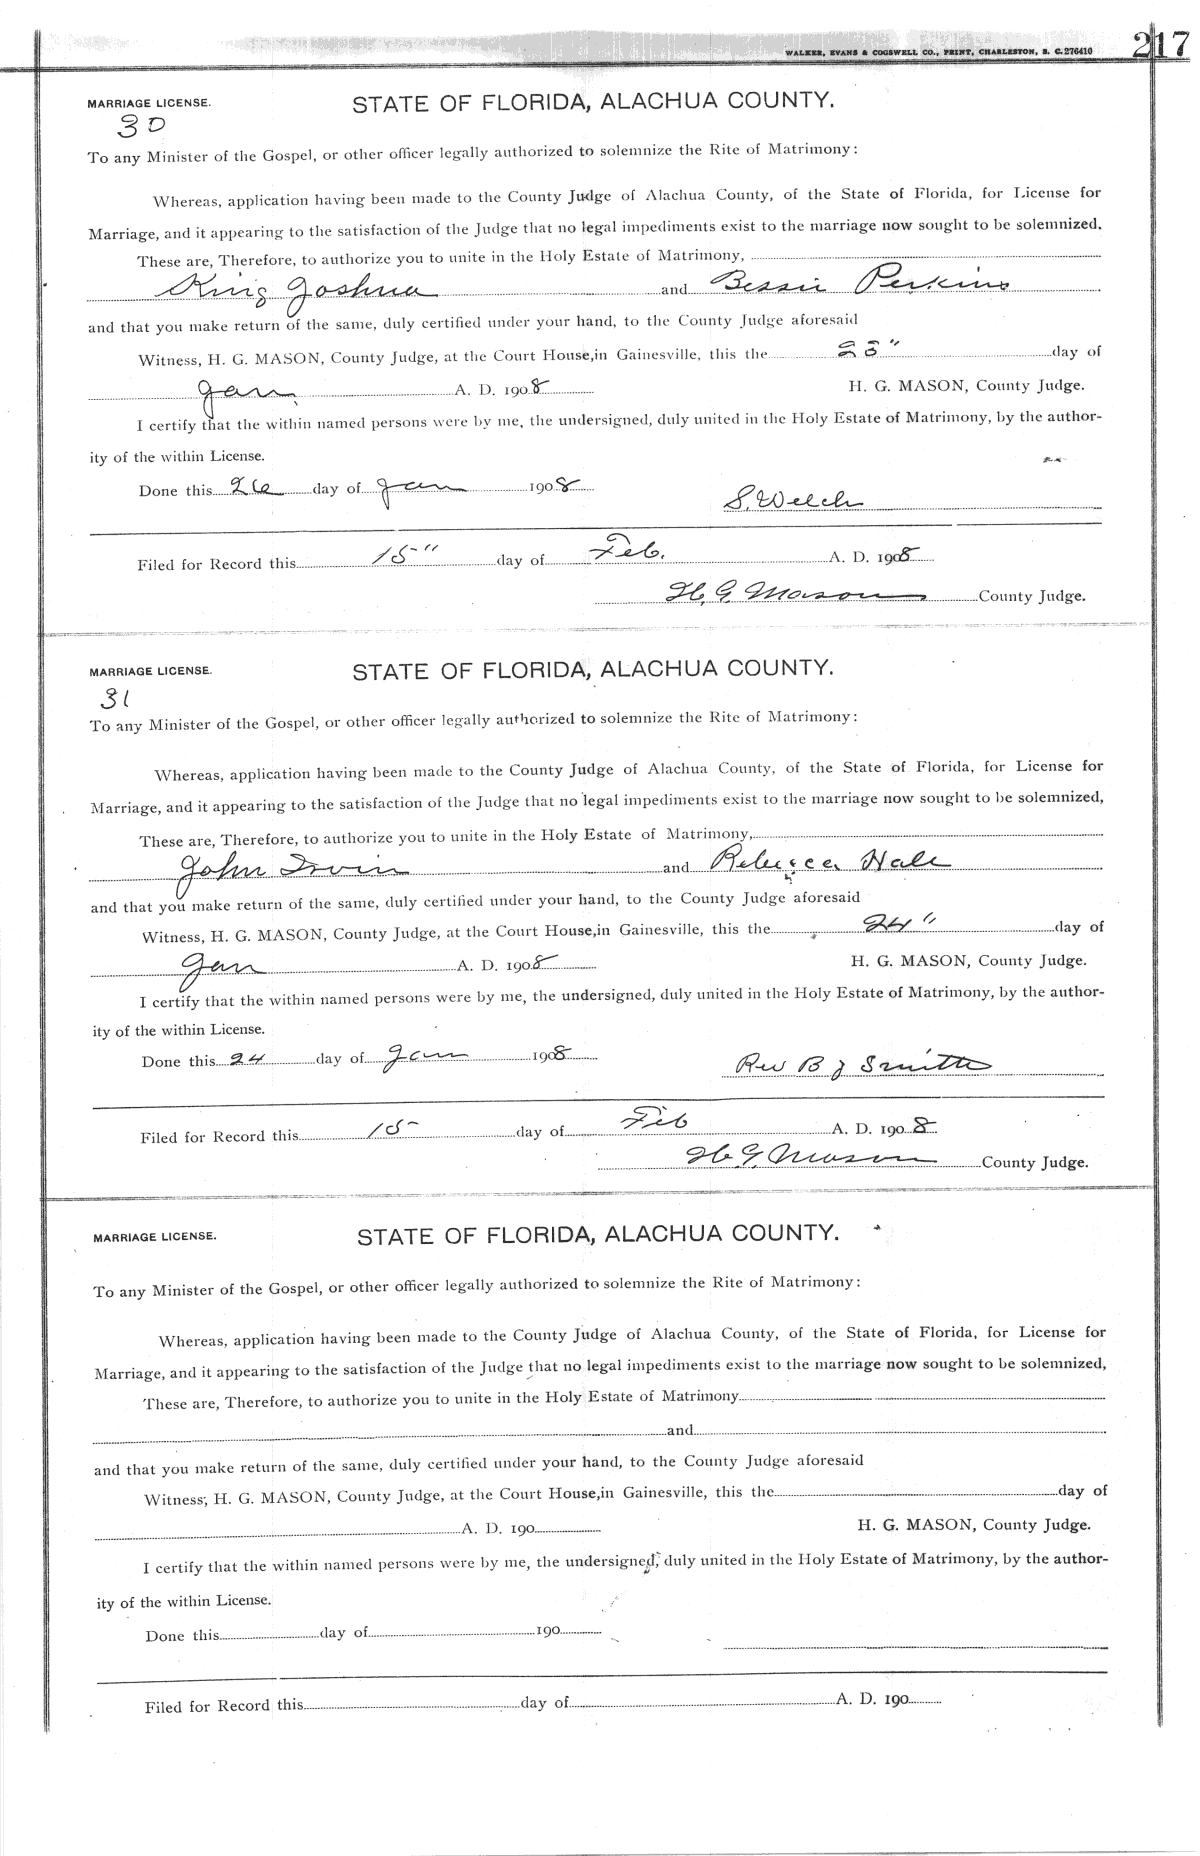 WALKER, EVANS & COGSWELL CO., PRINT, CHARLESTON, S. C. 276410
217
MARRIAGE LICENSE.
STATE OF FLORIDA, ALACHUA COUNTY.
30
To any Minister of the Gospel, or other officer legally authorized to solemnize the Rite of Matrimony:
Whereas, application having been made to the County Judge of Alachua County, of the State of Florida, for License for
Marriage, and it appearing to the satisfaction of the Judge that no legal impediments exist to the marriage now sought to be solemnized.
These are, Therefore, to authorize you to unite in the Holy Estate of Matrimony,
King Joshua and Bessie Perkins
and that you make return of the same, duly certified under your hand, to the County Judge aforesaid
Witness, H. G. MASON, County Judge, at the Court House, in Gainesville, this the day of
Jan. A. D. 1908 H. G. MASON, County Judge.
I certify that the within named persons were by me, the undersigned, duly united in the Holy Estate of Matrimony, by the author-
ity of the within License.
Done this 26 day of Jan 1908
S. Welch
Filed for Record this 15" day of Feb. A. D. 1908
H. G. Mason County Judge.
MARRIAGE LICENSE.
STATE OF FLORIDA, ALACHUA COUNTY.
31
To any Minister of the Gospel, or other officer legally authorized to solemnize the Rite of Matrimony:
Whereas, application having been made to the County Judge of Alachua County, of the State of Florida, for License for
Marriage, and it appearing to the satisfaction of the Judge that no legal impediments exist to the marriage now sought to be solemnized,
These are, Therefore, to authorize you to unite in the Holy Estate of Matrimony,
John Irvin and Rebecca Hale
and that you make return of the same, duly certified under your hand, to the County Judge aforesaid
Witness, H. G. MASON, County Judge, at the Court House, in Gainesville, this the 24" day of
Jan A. D. 1908 H. G. MASON, County Judge.
I certify that the within named persons were by me, the undersigned, duly united in the Holy Estate of Matrimony, by the author-
ity of the within License.
Done this 24 day of Jan 1908
Rev B J Smith
Filed for Record this 15 day of Feb A. D. 1908
H. G. Mason County Judge.
MARRIAGE LICENSE.
STATE OF FLORIDA, ALACHUA COUNTY.
To any Minister of the Gospel, or other officer legally authorized to solemnize the Rite of Matrimony:
Whereas, application having been made to the County Judge of Alachua County, of the State of Florida, for License for
Marriage, and it appearing to the satisfaction of the Judge that no legal impediments exist to the marriage now sought to be solemnized,
These are, Therefore, to authorize you to unite in the Holy Estate of Matrimony
and
and that you make return of the same, duly certified under your hand, to the County Judge aforesaid
Witness, H. G. MASON, County Judge, at the Court House, in Gainesville, this the day of
A. D. 190 H. G. MASON, County Judge.
I certify that the within named persons were by me, the undersigned, duly united in the Holy Estate of Matrimony, by the author-
ity of the within License.
Done this day of 190
Filed for Record this day of A. D. 190